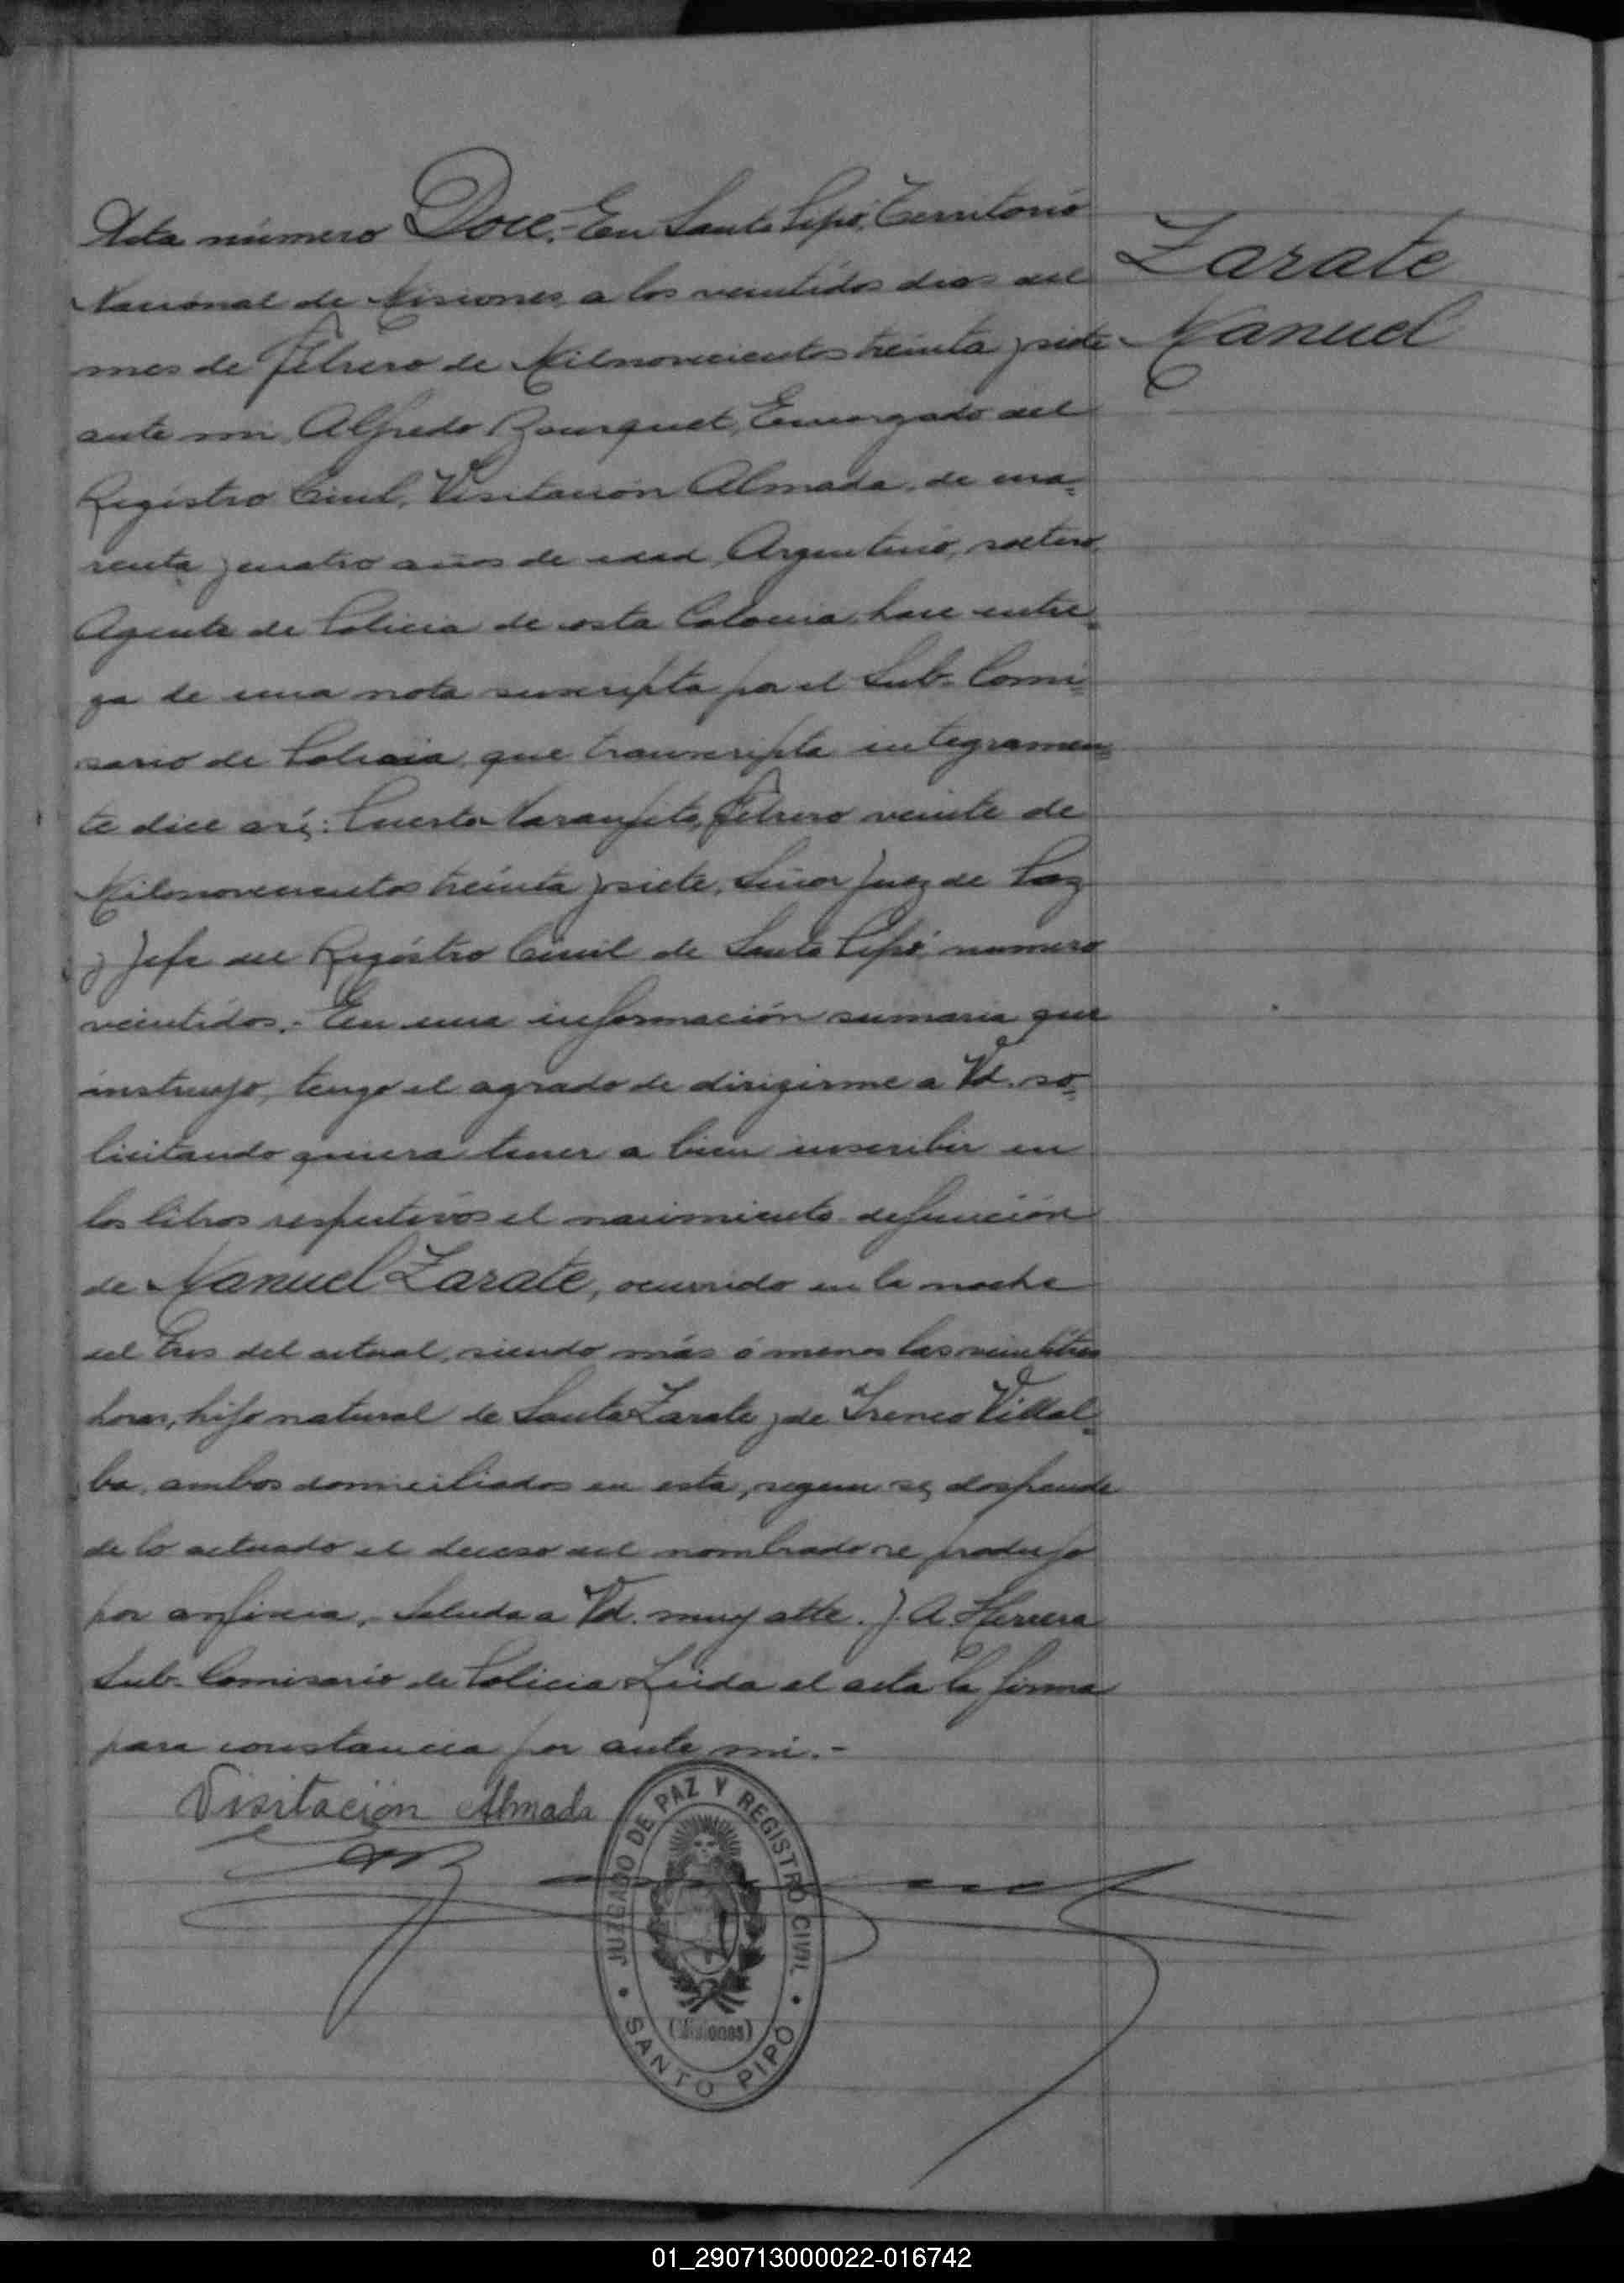 Acta número Doce.- En Santo Pipó, Territorio
Zarate
Nacional de Misiones, a los veintidos dias del
Manuel
mes de Febrero de Milnovecientos treinta y siete
ante mi, Alfredo Bourquet, Encargado del
Registro Civil, Visitación Almada, de cua=
renta y cuatro años de edad, Argentino, soltero,
Agente de Policia de esta Colonia, hace entre=
ga de una nota suscripta por el Sub-Comi=
sario de Policia, que transcripta integramen=
te dice así: Puerto Naranjito, Febrero veinte de
Milnovecientos treinta y siete. Señor Juez de Paz
y Jefe del Registro Civil de Santo Pipó numero
veintidos.- En una información sumaria que
instruyo, tengo el agrado de dirigirme a Vd. so=
licitando quiera tener a bien inscribir en
los libros respectivos el nacimiento defunción
de Manuel Zarate, ocurrido en la noche
del tres del actual, siendo más ó menos las veintitres
horas, hijo natural de Santa Zarate y de Ireneo Villal=
ba, ambos domiciliados en esta, segun se desprende
de lo actuado el deceso del nombrado se produjo
por asfixia.- Saluda a Vd. muy atte. J. A. Herrera
Sub-Comisario de Policia. Leida el acta la firma
para constancia por ante mi.-
Visitación Almada
JUZGADO DE PAZ Y REGISTRO CIVIL
(Misiones)
SANTO PIPÓ
01_290713000022-016742